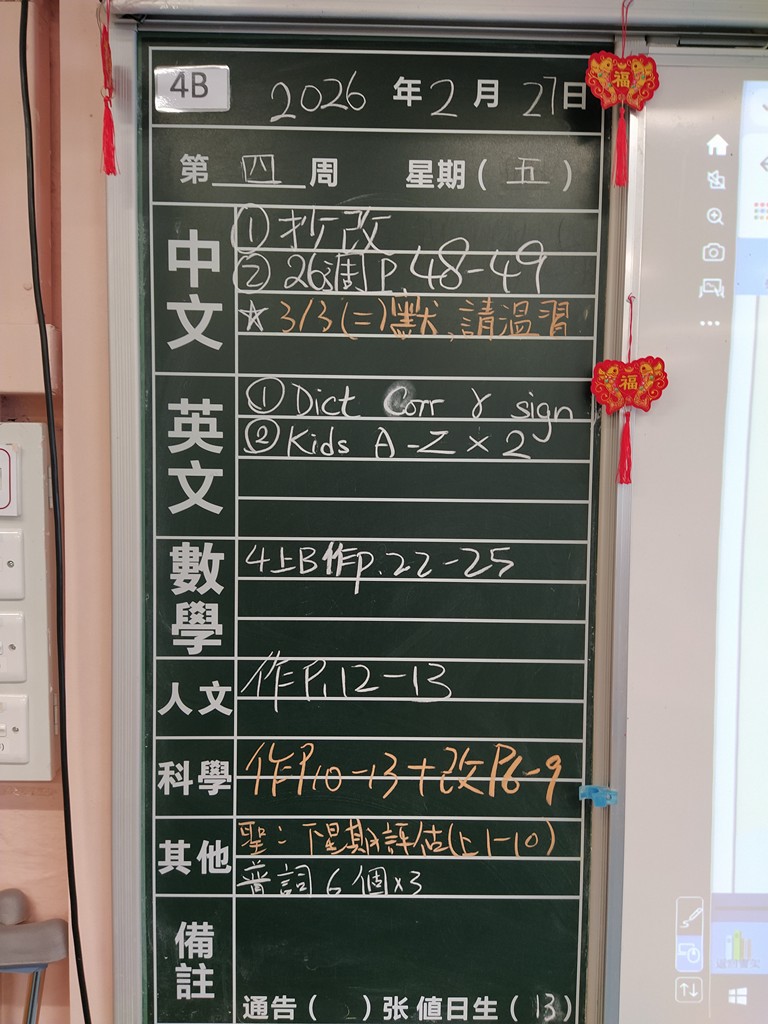 4B
2026 年 2 月 27 日
第 四 周 星期 ( 五 )
中文
① 抄改
② 26週 P. 48-49
☆ 3/3 (二) 默, 請溫習
英文
① Dict Corr & sign
② Kids A-Z × 2
數學
4上B作p.22-25
人文
作P.12-13
科學
作P.10-13+改P6-9
其他
聖: 下星期評估(上1-10)
普詞 6 個x3
備註
通告 ( ) 张 值日生 ( 13 )
福
福